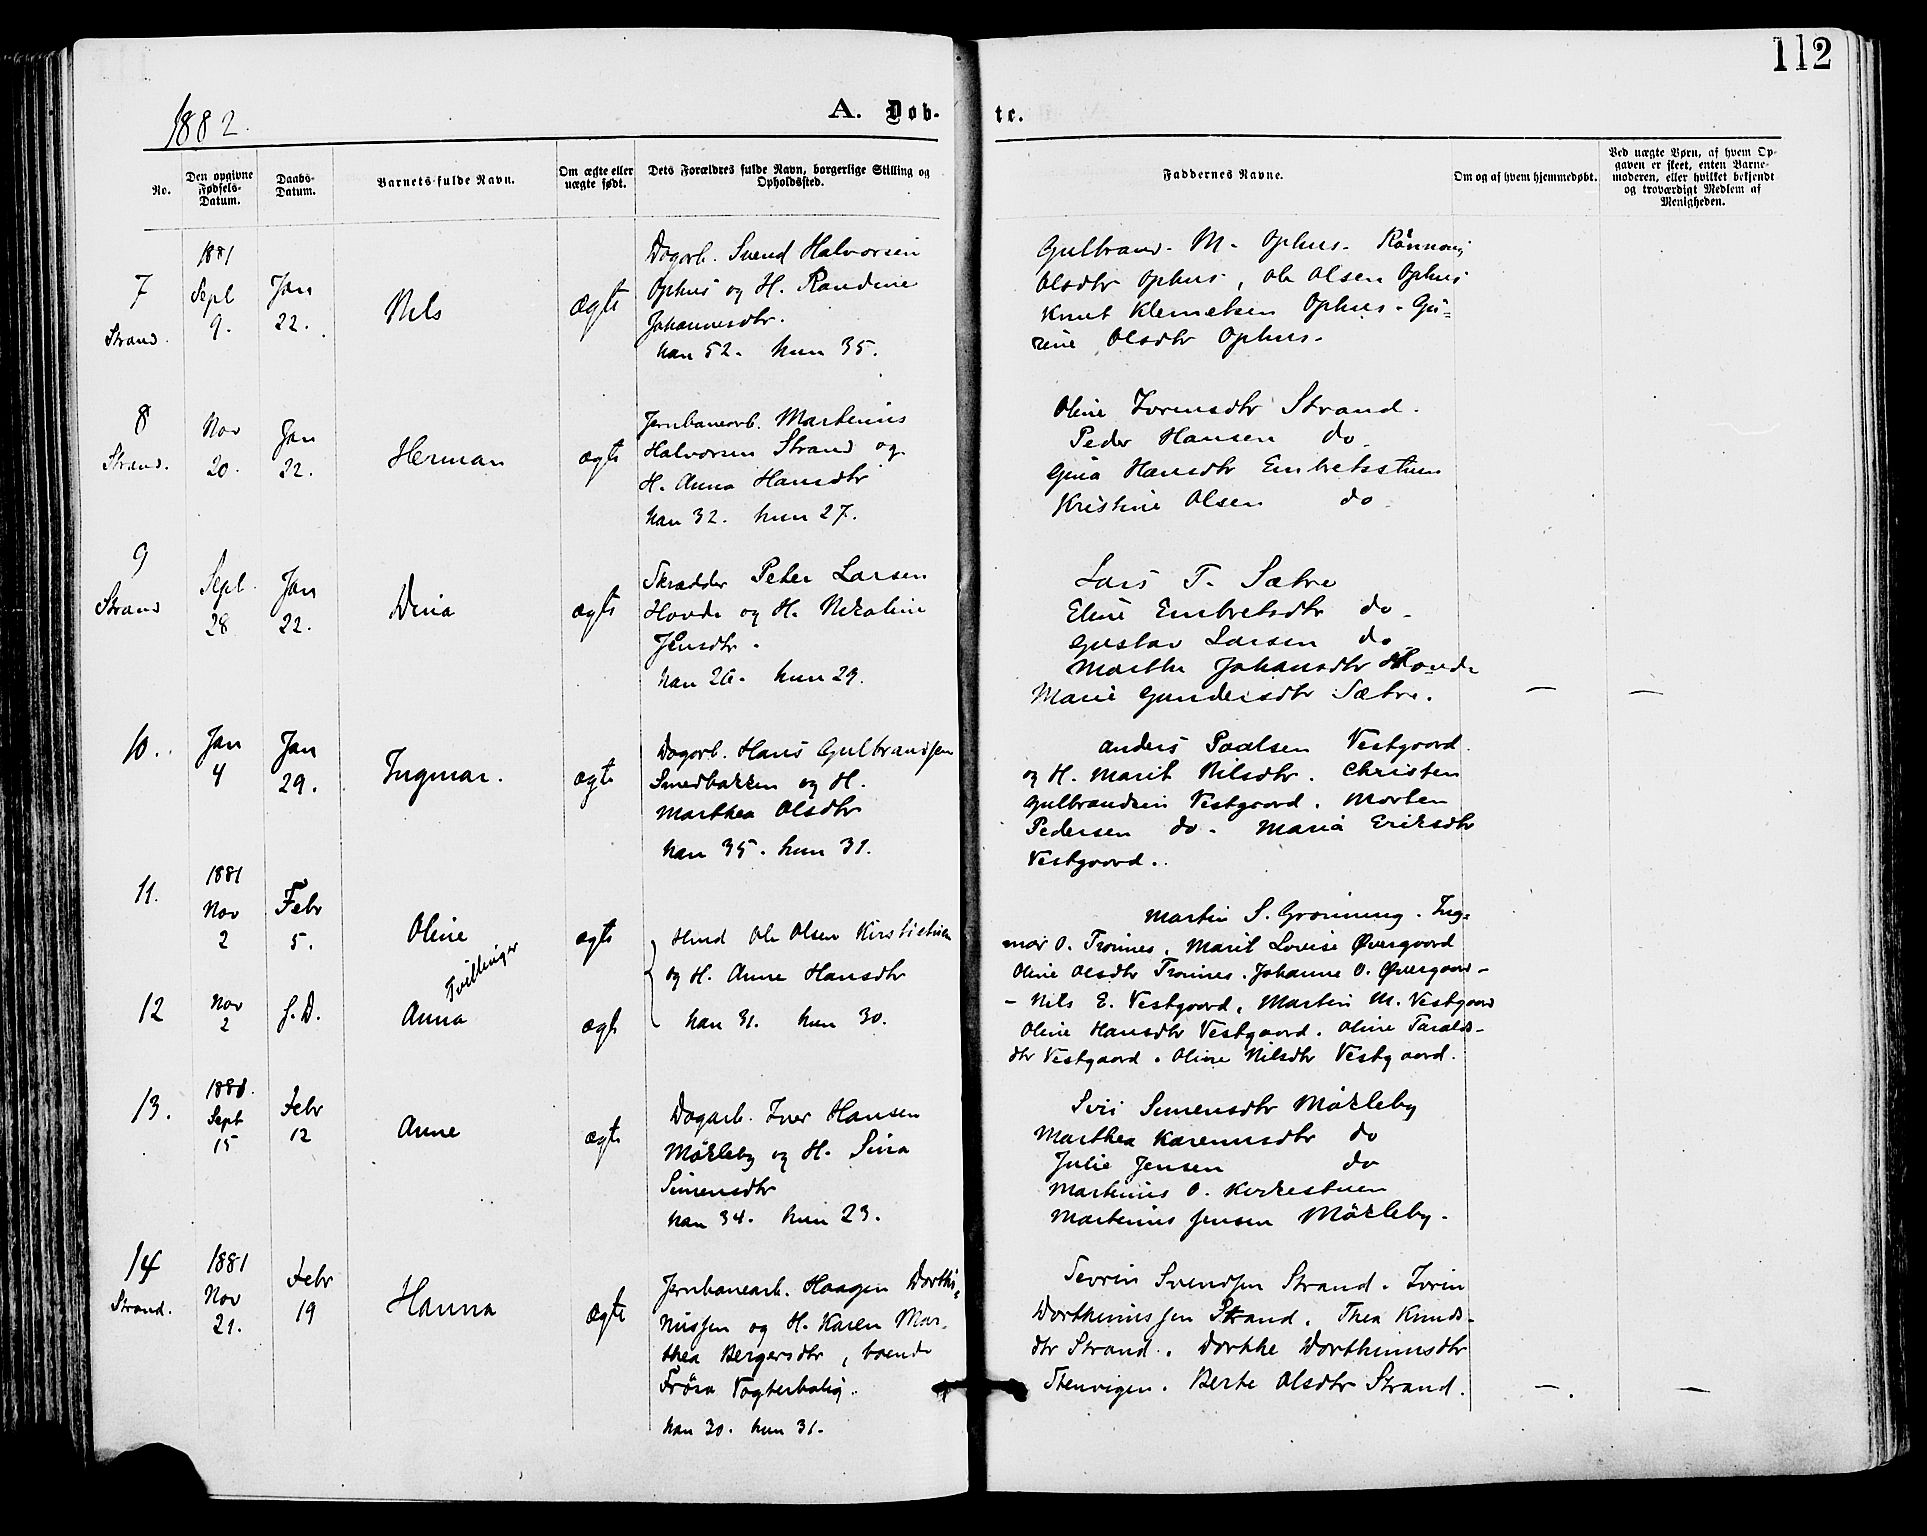 112
1882.
A. Døb- te.
No.
Den opgivne Fødsels-Datum.
Daabs-Datum.
Barnets fulde Navn.
Om ægte eller uægte født.
Dets Forældres fulde Navn, borgerlige Stilling og Opholdssted.
Faddernes Navne.
Om og af hvem hjemmedøbt.
Ved uægte Børn, af hvem Opgaven er skeet, enten Barnemoderen, eller hvilket bekjendt og troværdigt Medlem af Menigheden.
7
Strand.
1881
Sept
9.
Jan
22.
Nils
ægte
Dagarb. Svend Halvorsen
Ophus og H. Randine
Johannesdtr.
han 52. hun 35.
Gulbrand M. Ophus. Rönnoug
Olsdtr Ophus, Ole Olsen Ophus
Knut Klemetsen Ophus. Gu=
rine Olsdtr Ophus.
8
Strand.
Nov
20.
Jan
22.
Herman
ægte
Jernbanearb. Marthinus
Halvorsen Strand og
H. Anna Hansdtr
han 32. hun 27.
Oline Iversdtr Strand.
Peder Hansen do.
Gina Hansdtr Embretsstuen
Kristine Olsen do.
9
Strand
Sept.
28
Jan
22.
Dina
ægte
Skrædder Peter Larsen
Hovde og H. Nikoline
Jensdtr.
han 26. hun 29.
Lars T. Sætre
Eline Embretsdtr do.
Gustav Larsen do
Marthe Johansdtr Hovde
Marie Gundersdtr Sætre. — —
10.
Jan
4
Jan
29.
Ingmar.
ægte
Dagarb. Hans Gulbrandsen
Smedbakken og H.
Marthea Olsdtr
han 35. hun 31.
Anders Paalsen Vestgaard
og H. Marit Nilsdtr. Christen
Gulbrandsen Vestgaard. Morten
Pedersen do. Maria Eriksdtr
Vestgaard.
11.
1881
Nov
2
Febr
5.
Oline
Tvillinger
ægte
Hmd Ole Olsen Kirstistuen
og H. Anne Hansdtr
han 31. hun 30.
Martin S. Grönning. Ing=
mar O. Trönnes. Marit Lovise Øvergaard
Oline Olsdtr Trönnes. Johanne O. Øvergaard -
12
Nov
2
S. D.
Anna
ægte
- Nils E. Vestgaard. Martin M. Vestgaard
Oline Hansdtr Vestgaard. Oline Taralds-
dtr Vestgaard. Oline Nilsdtr Vestgaard.
13.
1881.
Sept
15
Febr
12
Anne
ægte
Dagarb. Iver Hansen
Mökleby og H. Sina
Simensdtr
han 34. hun 23.
Siri Simensdtr Mökleby
Marthea Karenusdtr do
Julie Jensen do
Marthinus O. Kirkestuen
Marthinus Jensen Mökleby.
14
Strand.
1881
Nov
21.
Febr
19
Hanna
ægte
Jernbanearb. Haagen Dorthi=
nussen og H. Karen Mar-
thea Bergersdtr, boende
Fröra Vogterbolig.
han 30. hun 31.
Sevrin Svendsen Strand. Iver
Dorthinussen Strand. Thea Knuds-
dtr Strand. Dorthe Dorthinusdtr
Stenvigen. Berte Olsdtr Strand. —. —